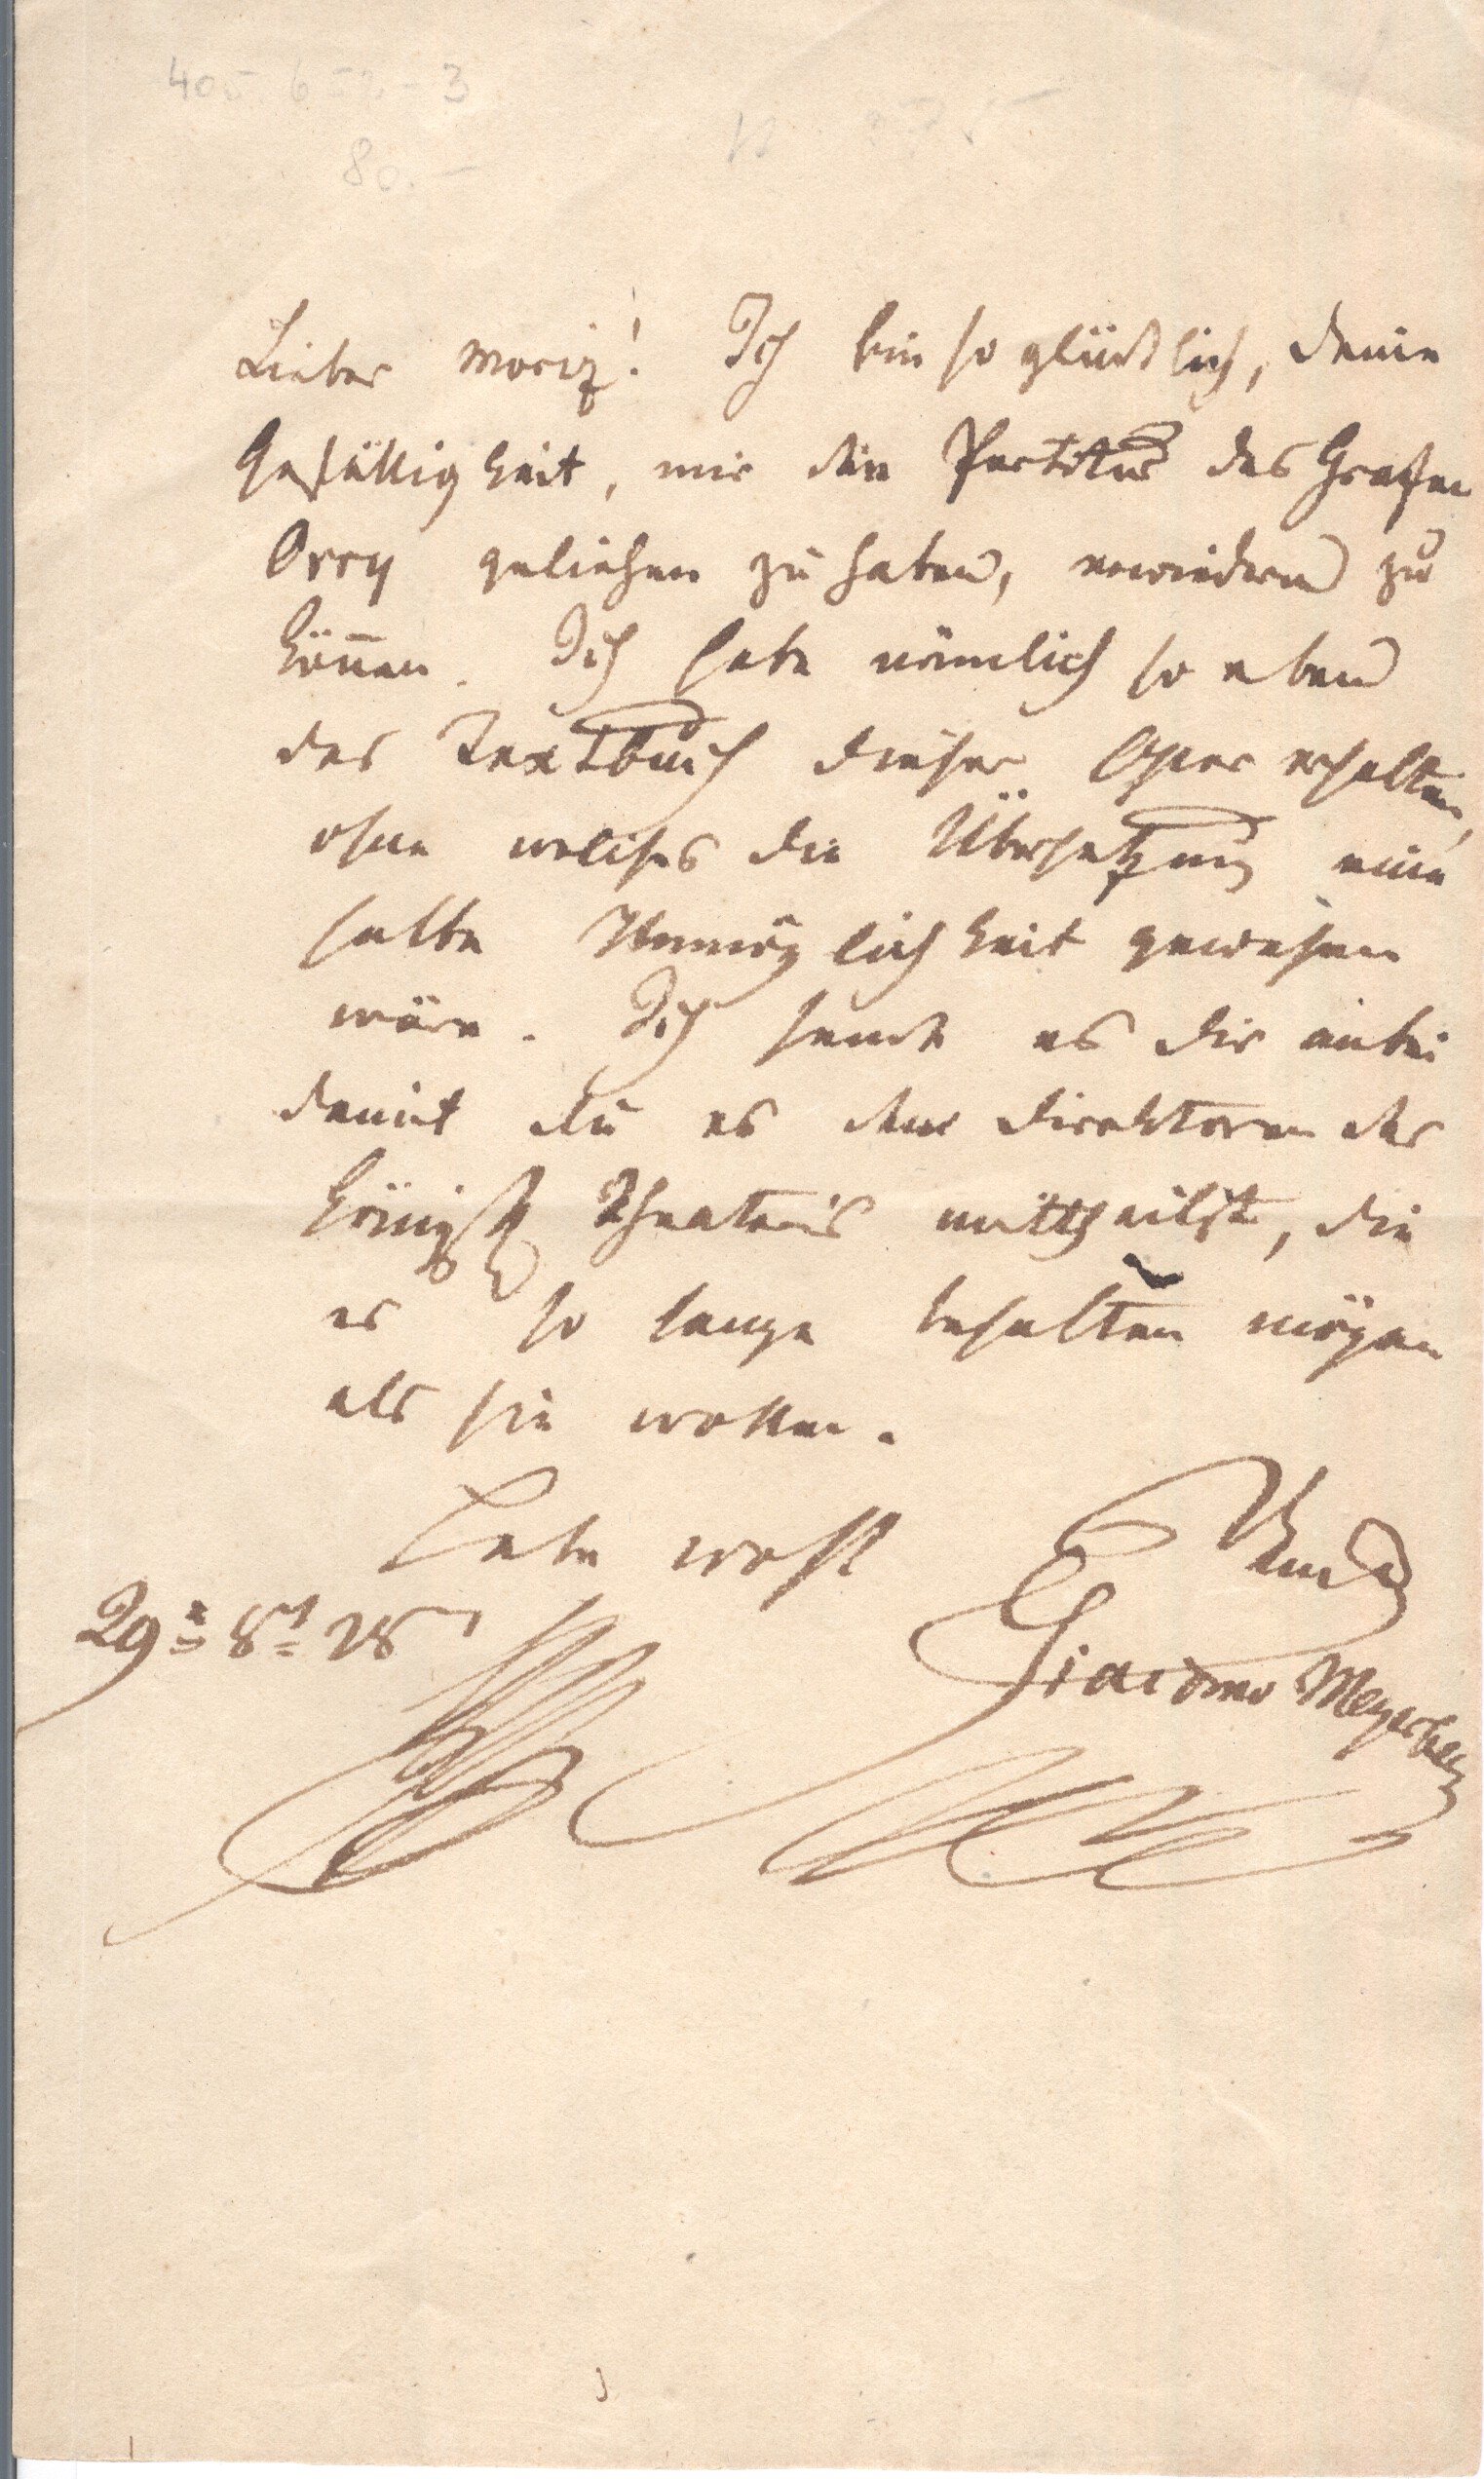 40 - 6 - 3
80.-
Lieber Moriz! Ich bin so glücklich, deine
Gefälligkeit, mir die Partitur des Grafen
Orry geliehen zu haben, erwiedern zu
köñen. Ich habe nämlich so eben
das Textbuch dieser Oper erhalten,
ohne welches die Übersetzung eine
halbe Unmöglichkeit gewesen
wäre. Ich sende es dir anbei
damit du es den Direktoren des
Königst Theaters mittheilst, die
es so lange behalten mögen
als sie wollen.
Lebe wohl
29 8 28
Giacomo Meyerbeer